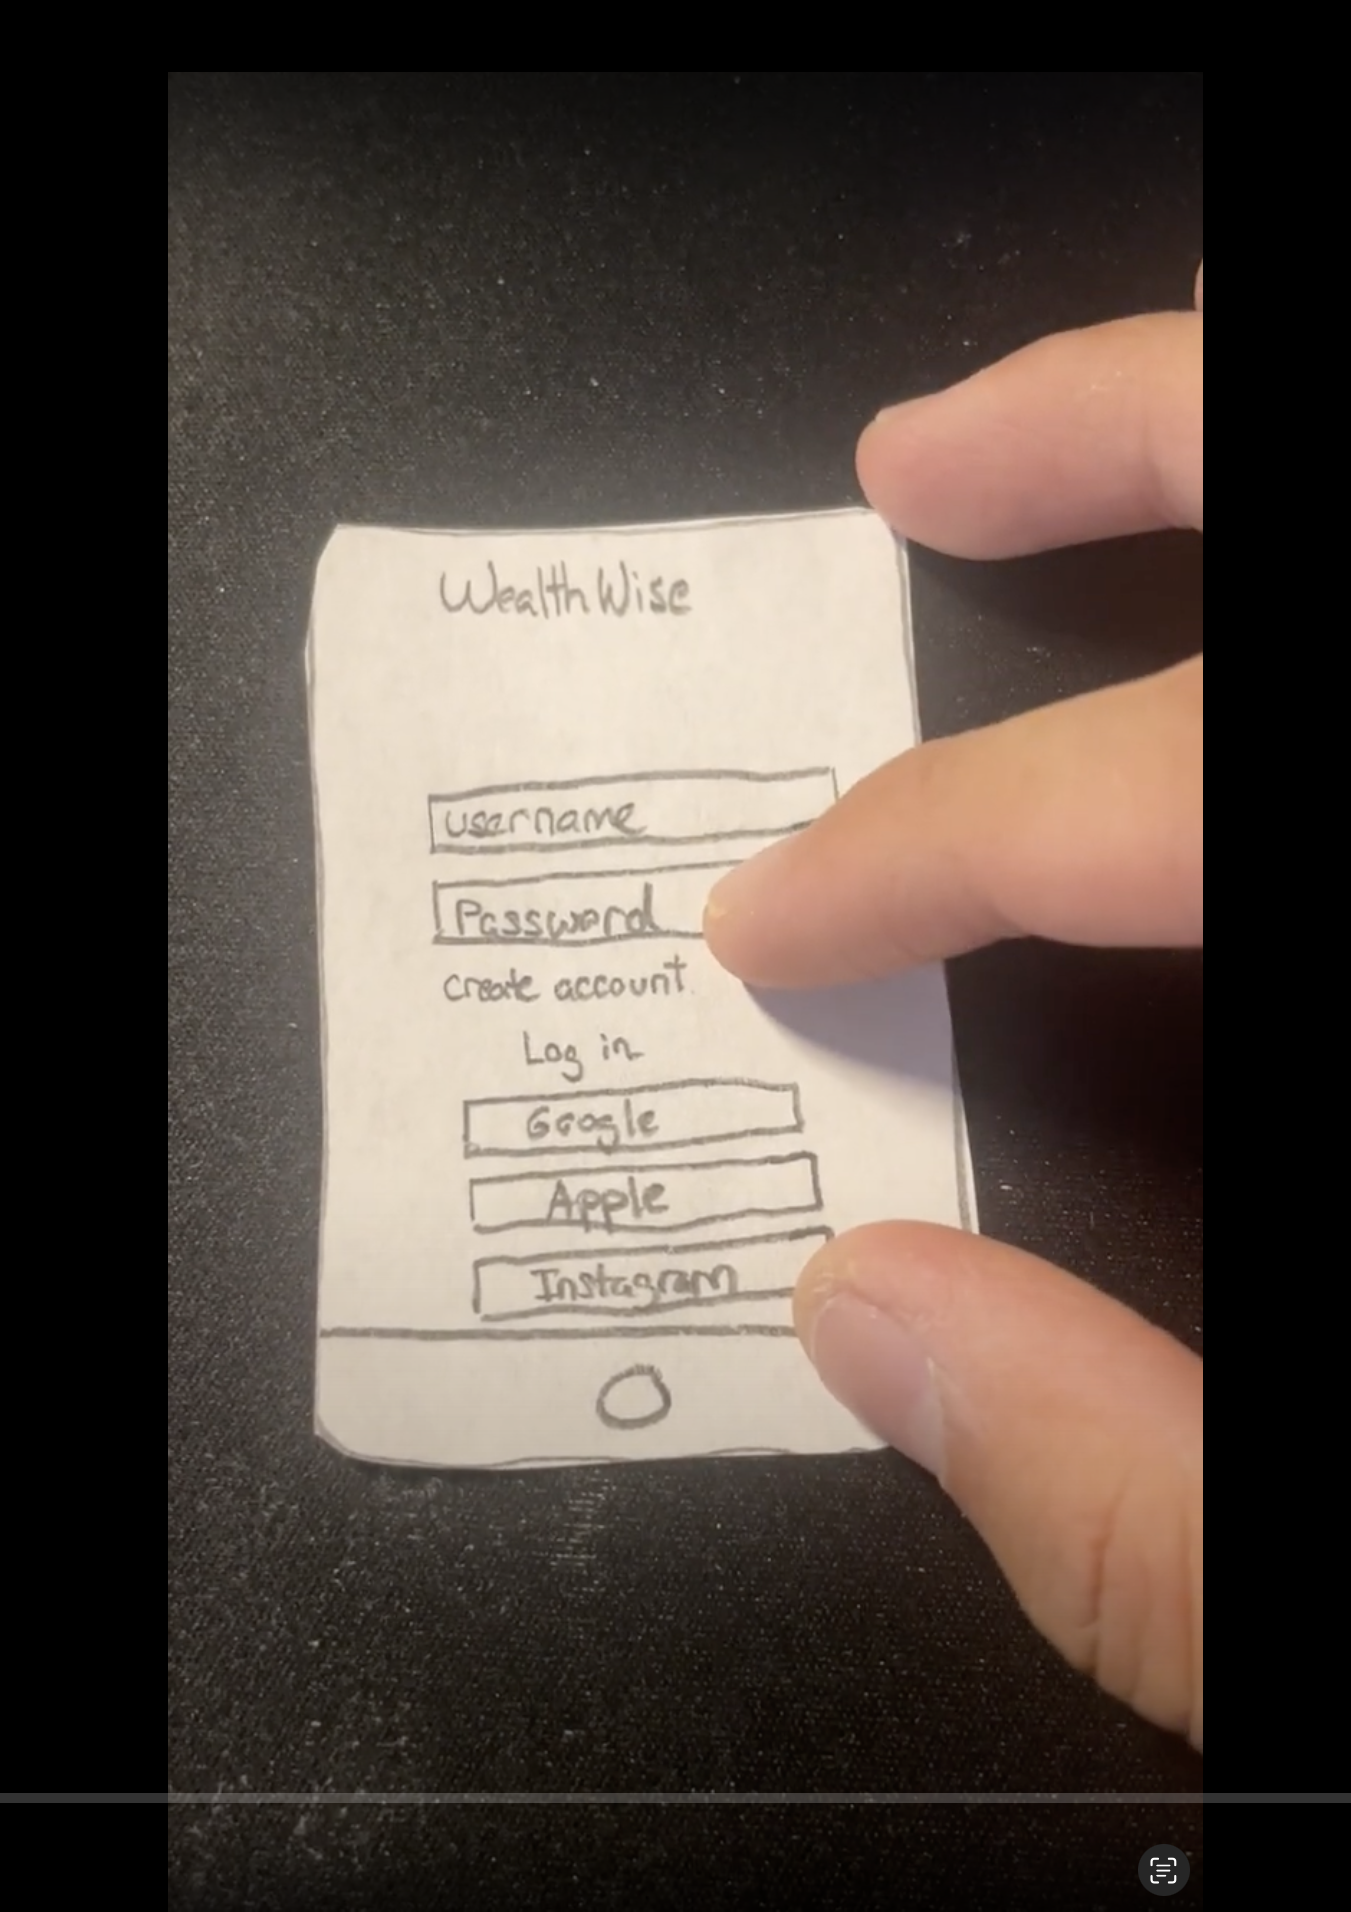 WealthWise
username
Password
create account
Log in
Google
Apple
Instagram